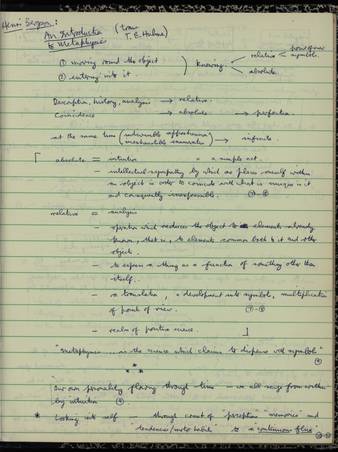 Henri Bergson:
An Introduction (trans
to Metaphysics T. E. Hulme)
① moving round the object
② entering into it
knowing
relative point of view symbols.
absolute.
Description, history, analysis → relative.
Coincidence → absolute → perfection.
at the same time (indivisible apprehension / inexhaustible enumeration) → infinite.
absolute = intuitive = a simple act.
– intellectual sympathy by which one places oneself within
an object in order to coincide with what is unique in it
and consequently inexpressible.
relative = analysis
– operation which reduces the object to elements already
known, that is, to elements common both to it and other
objects.
– to express a thing as a function of something other than
itself.
– a translation, a development into symbols, multiplication
of point of view.
– realm of positive science.
"Metaphysics ... is the science which claims to dispense with symbols"
* * *
"Our own personality flowing through time – we all seize from within
by intuition
* Looking into self – through count of "perceptions" "memories" and
"tendencies/motor habits" to "a continuous flux"